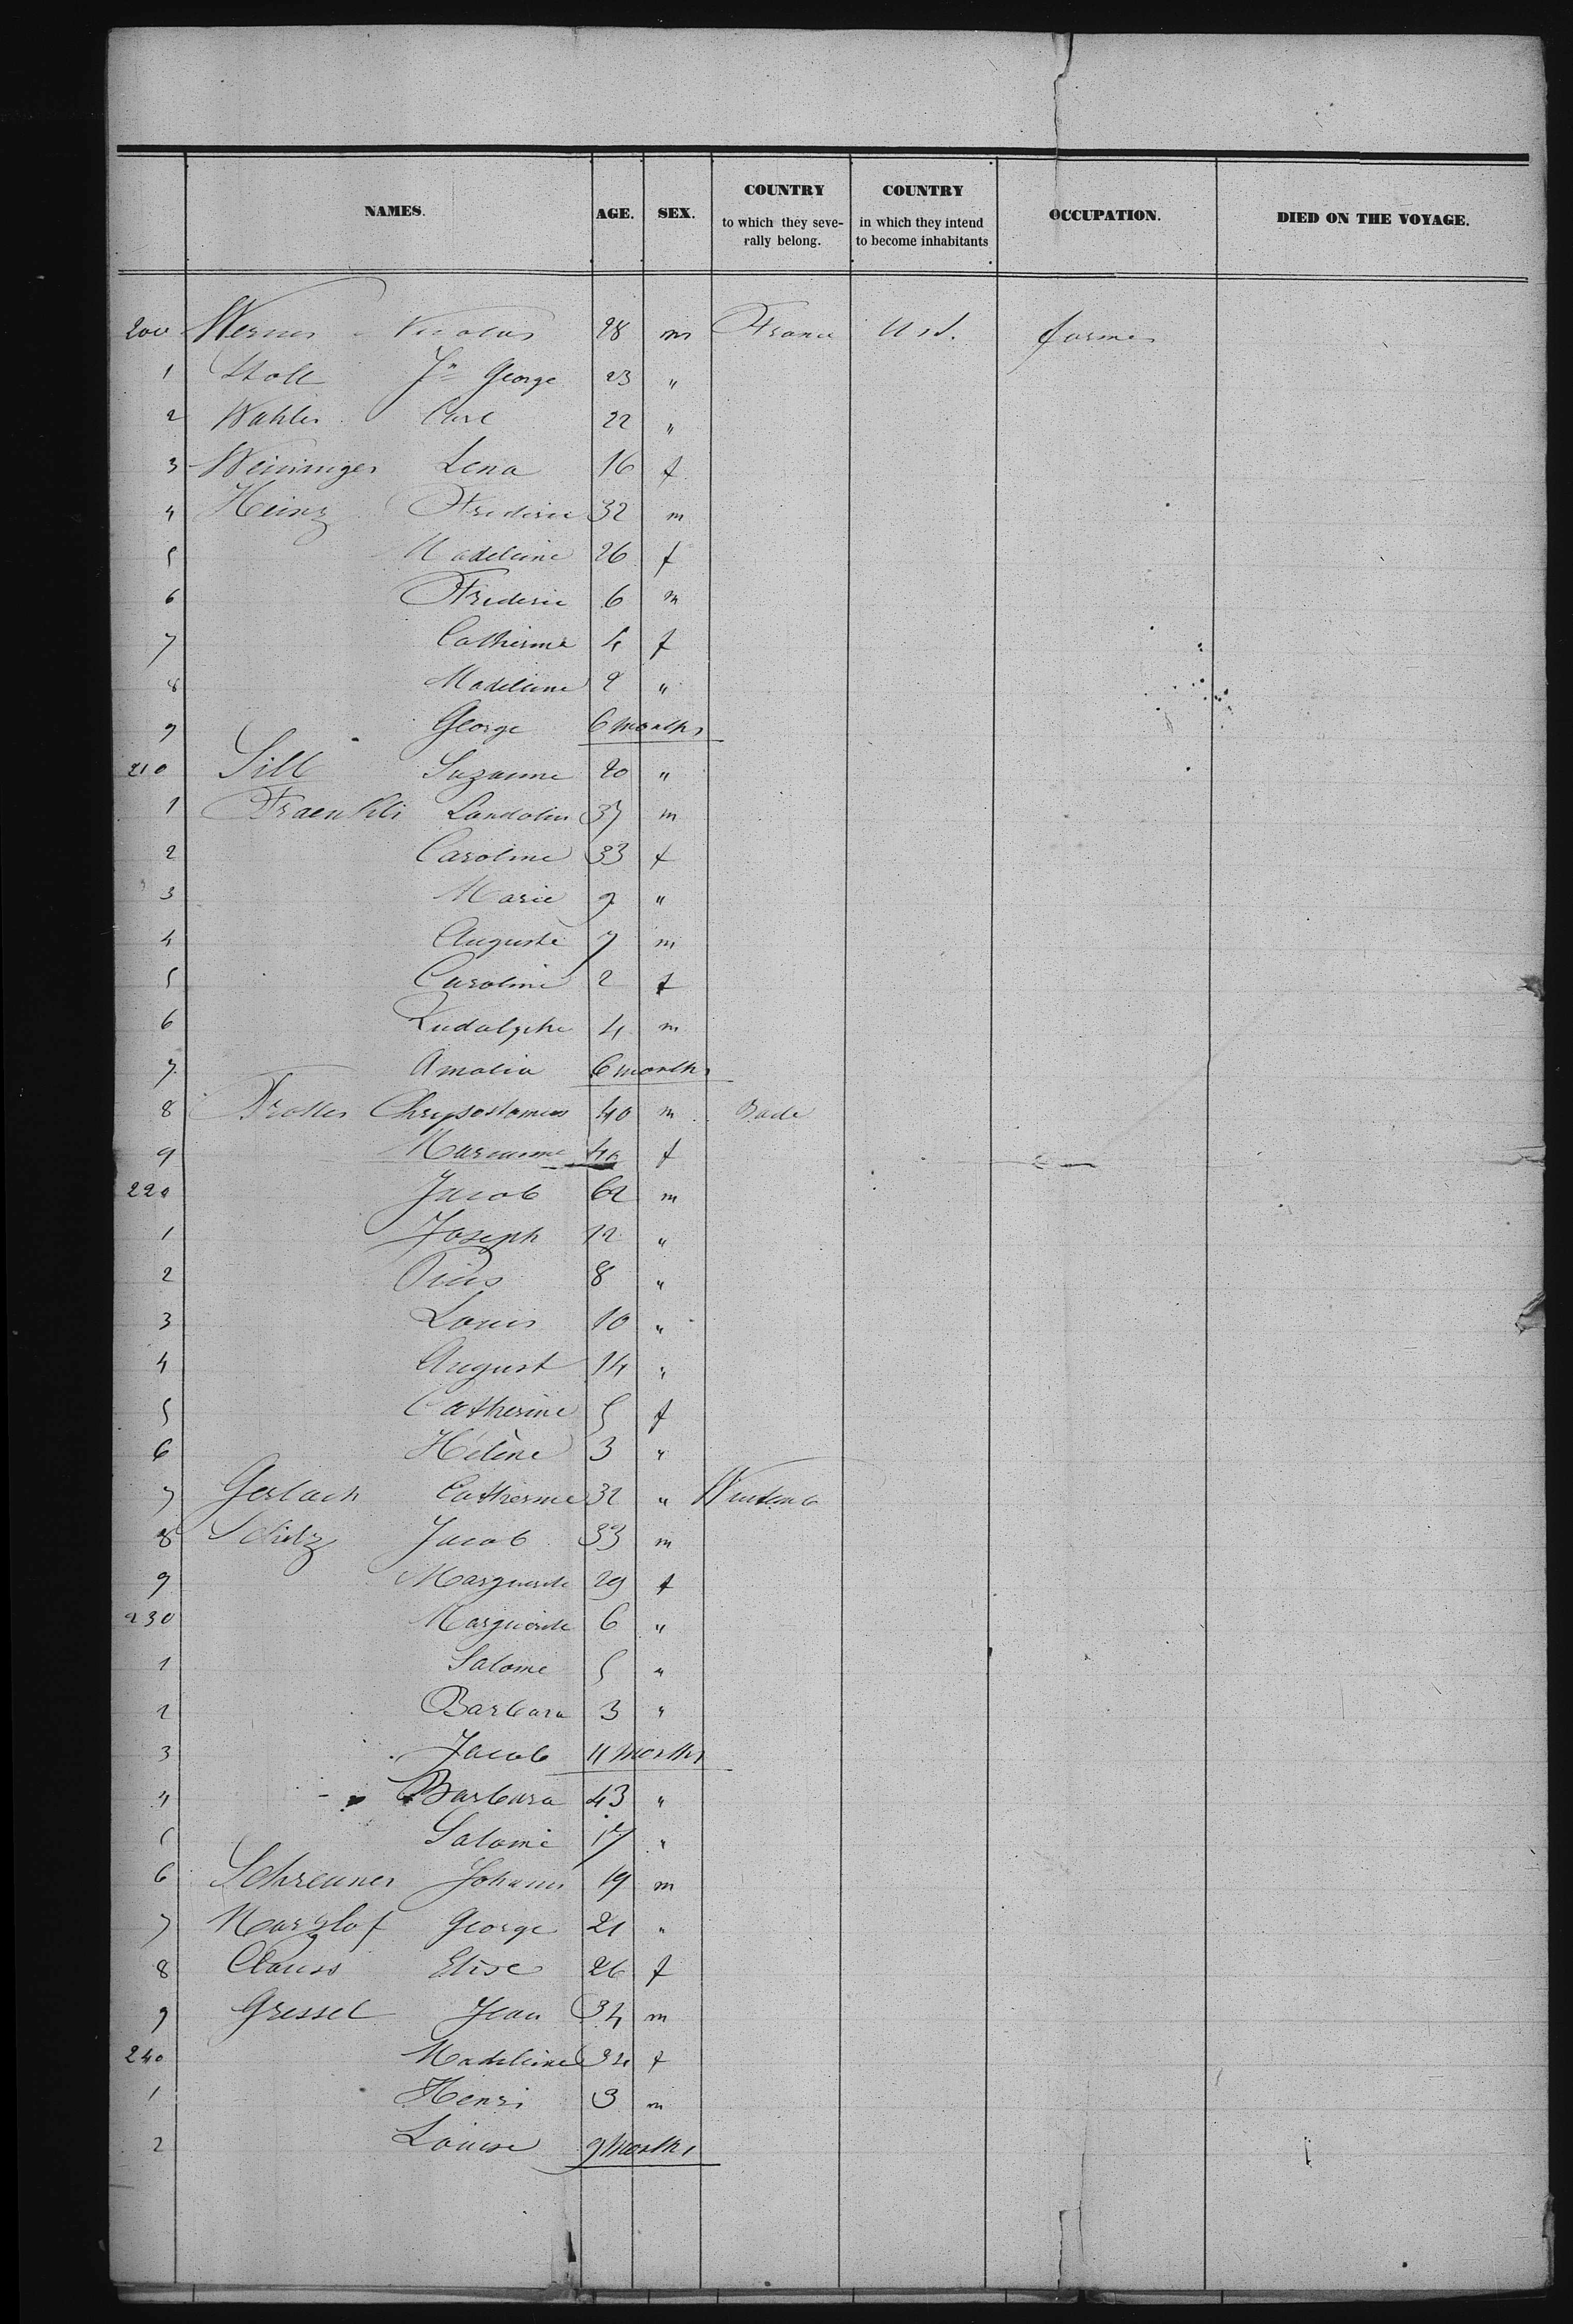 NAMES. AGE. SEX. COUNTRY to which they seve- rally belong. COUNTRY in which they intend to become inhabitants OCCUPATION. DIED ON THE VOYAGE.
200 Werner Nicolas 28 m France U S. farmer
1 Stoll Jn George 23 "
2 Wahler Carl 22 "
3 Weininger Lena 16 f
4 Heinz Frederic 32 m
5 Madeleine 26 f
6 Frederic 6 m
7 Catherine 4 f
8 Madeleine 2 "
9 George 6 months
210 Sill Suzanne 20 "
1 Fraenkli Landolin 37 m
2 Caroline 33 f
3 Marie 9 "
4 Auguste 7 m
5 Caroline 2 f
6 Rudolphe 4 m
7 Amalia 6 months
8 Trotter Chrysostomus 40 m Bade
9 Marianne 40 f
220 Jacob 62 m
1 Joseph 12 "
2 Pius 8 "
3 Louis 10 "
4 August 14 "
5 Catherine 5 f
6 Hélène 3 "
7 Gerlach Catherine 32 "
8 Jacob 33 m
9 Marguerite 29 f
230 Marguerite 6 "
1 Salome 5 "
2 Barbara 3 "
3 Jacob 11 months
4 Barbara 43 "
5 Salome 17 "
6 Schreuner Johann 19 m
7 Marzlof George 21 "
8 Clauss Elise 26 f
9 Gressel Jean 34 m
240 Madeleine 34 f
1 Henri 3 m
2 Louise 9 months